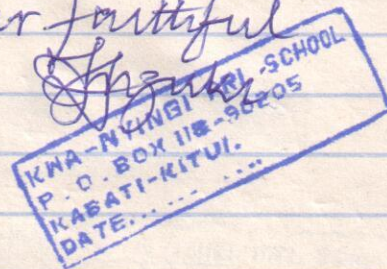 faithful
KWA-NYINGI PRI-SCHOOL
P.O. BOX 118-90205
KABATI-KITUI.
DATE.........